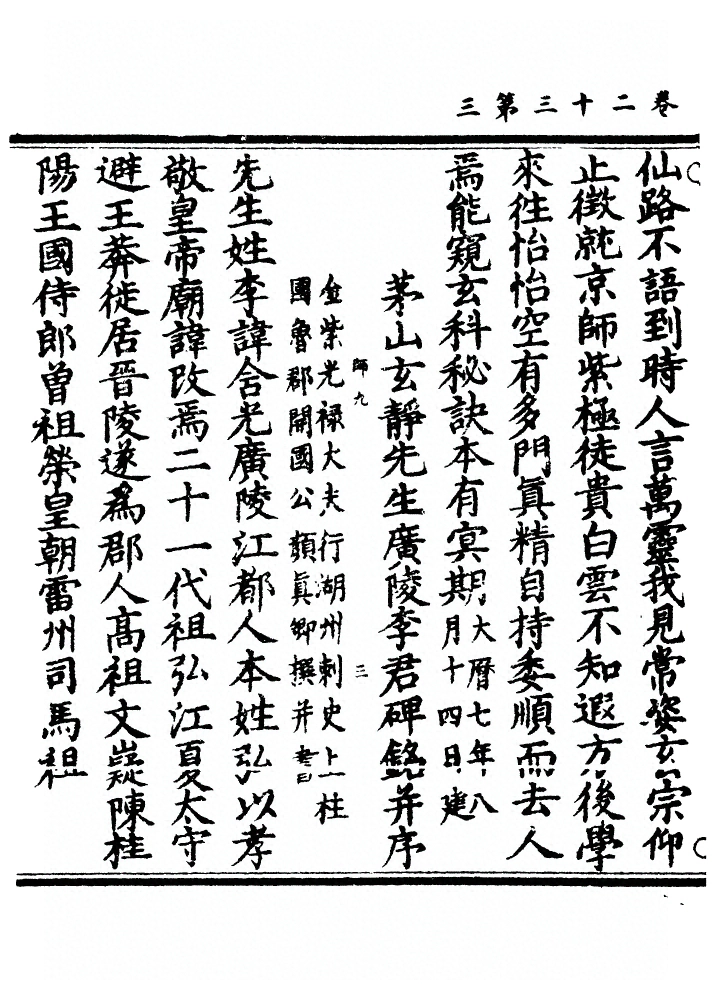 卷二十三第三
仙路不語到時人言萬靈我見常姿玄宗仰
止徵就京師紫極徒貴白雲不知遐方後學
來徃怡怡空有多門眞精自持委順而去人
焉能窺玄科秘訣本有冥期大曆七年八
月十四日建
茅山玄靜先生廣陵李君碑銘并序
師九
三
金紫光禄大夫行湖州刺史上柱
國魯郡開國公顏眞卿撰并書
先生姓李諱含光廣陵江都人本姓弘以孝
敬皇帝廟諱改焉二十一代祖弘江夏太守
避王莽徙居晉陵遂爲郡人髙祖文嶷陳桂
陽王國侍郎曾祖榮皇朝雷州司馬祖